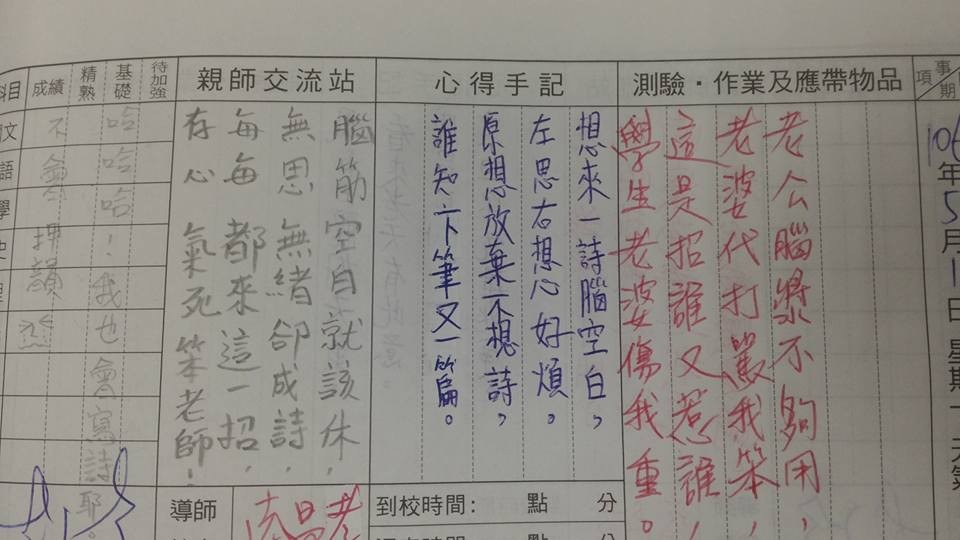 事
項
期
106年5月1日 星期一
測驗・作業及應帶物品
老公腦漿不夠用,
老婆代打罵我笨,
這是招誰又惹誰,
學生老婆傷我重。
心得手記
想來一詩腦空白,
左思右想心好煩。
原想放棄不想詩,
誰知下筆又一篇。
親師交流站
腦筋空白就該休,
無思無緒卻成詩,
每每都來這一招,
存心氣死笨老師!
待加強
基礎
精熟
成績
科目
哈哈哈!我也會寫詩耶。
不會押韻
導師
到校時間: 點 分